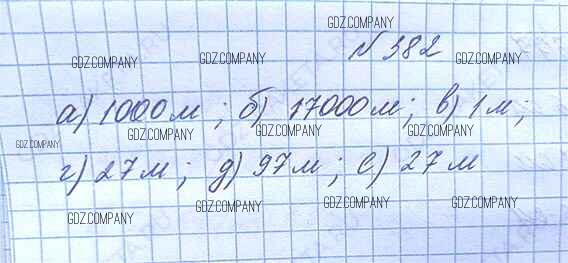 GDZ.COMPANY
№382
GDZ.COMPANY GDZ.COMPANY GDZ.COMPANY
а) 1000 м; б) 17000 м; в) 1 м;
GDZ.COMPANY GDZ.COMPANY GDZ.COMPANY GDZ.COMPANY
г) 27 м; д) 97 м; е) 27 м
GDZ.COMPANY GDZ.COMPANY GDZ.COMPANY GDZ.COMPANY